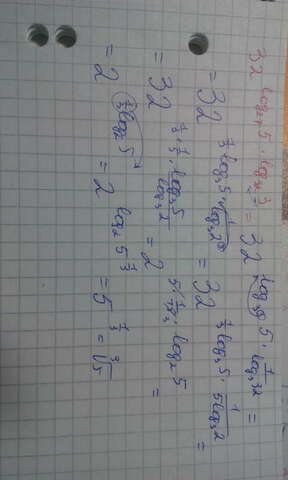 32^{log 5 · log 3} = 32^{log 5 · 1/log₃32} =
= 32^{1/3 log₃5 · 1/log₃2⁵} = 32^{1/3 log₃5 · 1/5log₃2} =
= 32^{1/3 · 1/5 · log₃5/log₃2} = 2^{5 · 1/15 · log₂5} =
= 2^{1/3 log₂5} = 2^{log₂5^{1/3}} = 5^{1/3} = ∛5